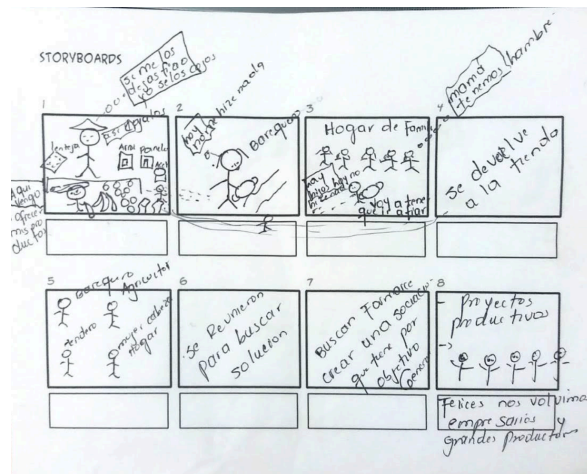 STORYBOARDS
1
si me los
deja fiao
yo se los cojo
lenteja
Arroz
Panela
Aqui
vengo a
ofrecer
mis pro
ductos
2
hoy
no
hize nada
Barequero
3
Hogar de Familia
hay
hijos hoy no
hize nada
voy a tener
que ir a fiar
4
mamá
tenemos hambre
se devuelve
a la tienda
5
Barequero
Agricultor
tendero
mujer cabeza
Hogar
6
se Reunieron
para buscar
solución
7
Buscan Formarse
crear una sociación
que tiene por
objetivo
generar
8
Proyectos
productivos
Felices nos volvimos
empresarios y
grandes productores